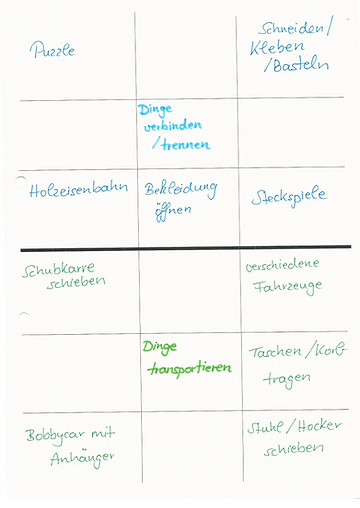 Puzzle
Schneiden/
Kleben
/Basteln
Dinge
verbinden
/trennen
Holzeisenbahn
Bekleidung
öffnen
Steckspiele
Schubkarre
schieben
verschiedene
Fahrzeuge
Dinge
transportieren
Taschen/Korb
tragen
Bobbycar mit
Anhänger
Stuhl/Hocker
schieben